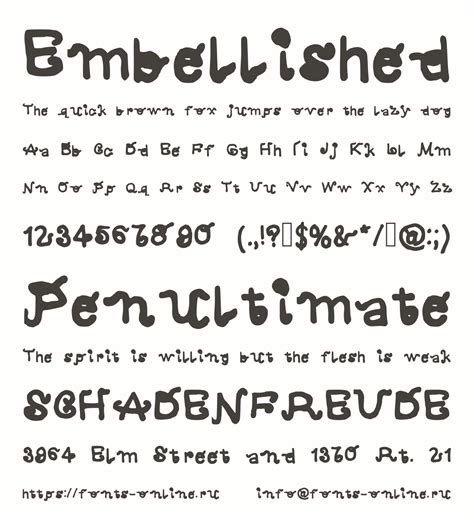 Embellished
The quick brown fox jumps over the lazy dog
Aa Bb Cc Dd Ee Ff Gg Hh Ii Jj Kk Ll Mm
Nn Oo Pp Qq Rr Ss Tt Uu Vv Ww Xx Yy Zz
1234567890 (.,!?▯$%&*/▯@:;)
Penultimate
The spirit is willing but the flesh is weak
SCHADENFREUDE
3964 Elm Street and 1370 Rt. 21
https://fonts-online.ru info@fonts-online.ru